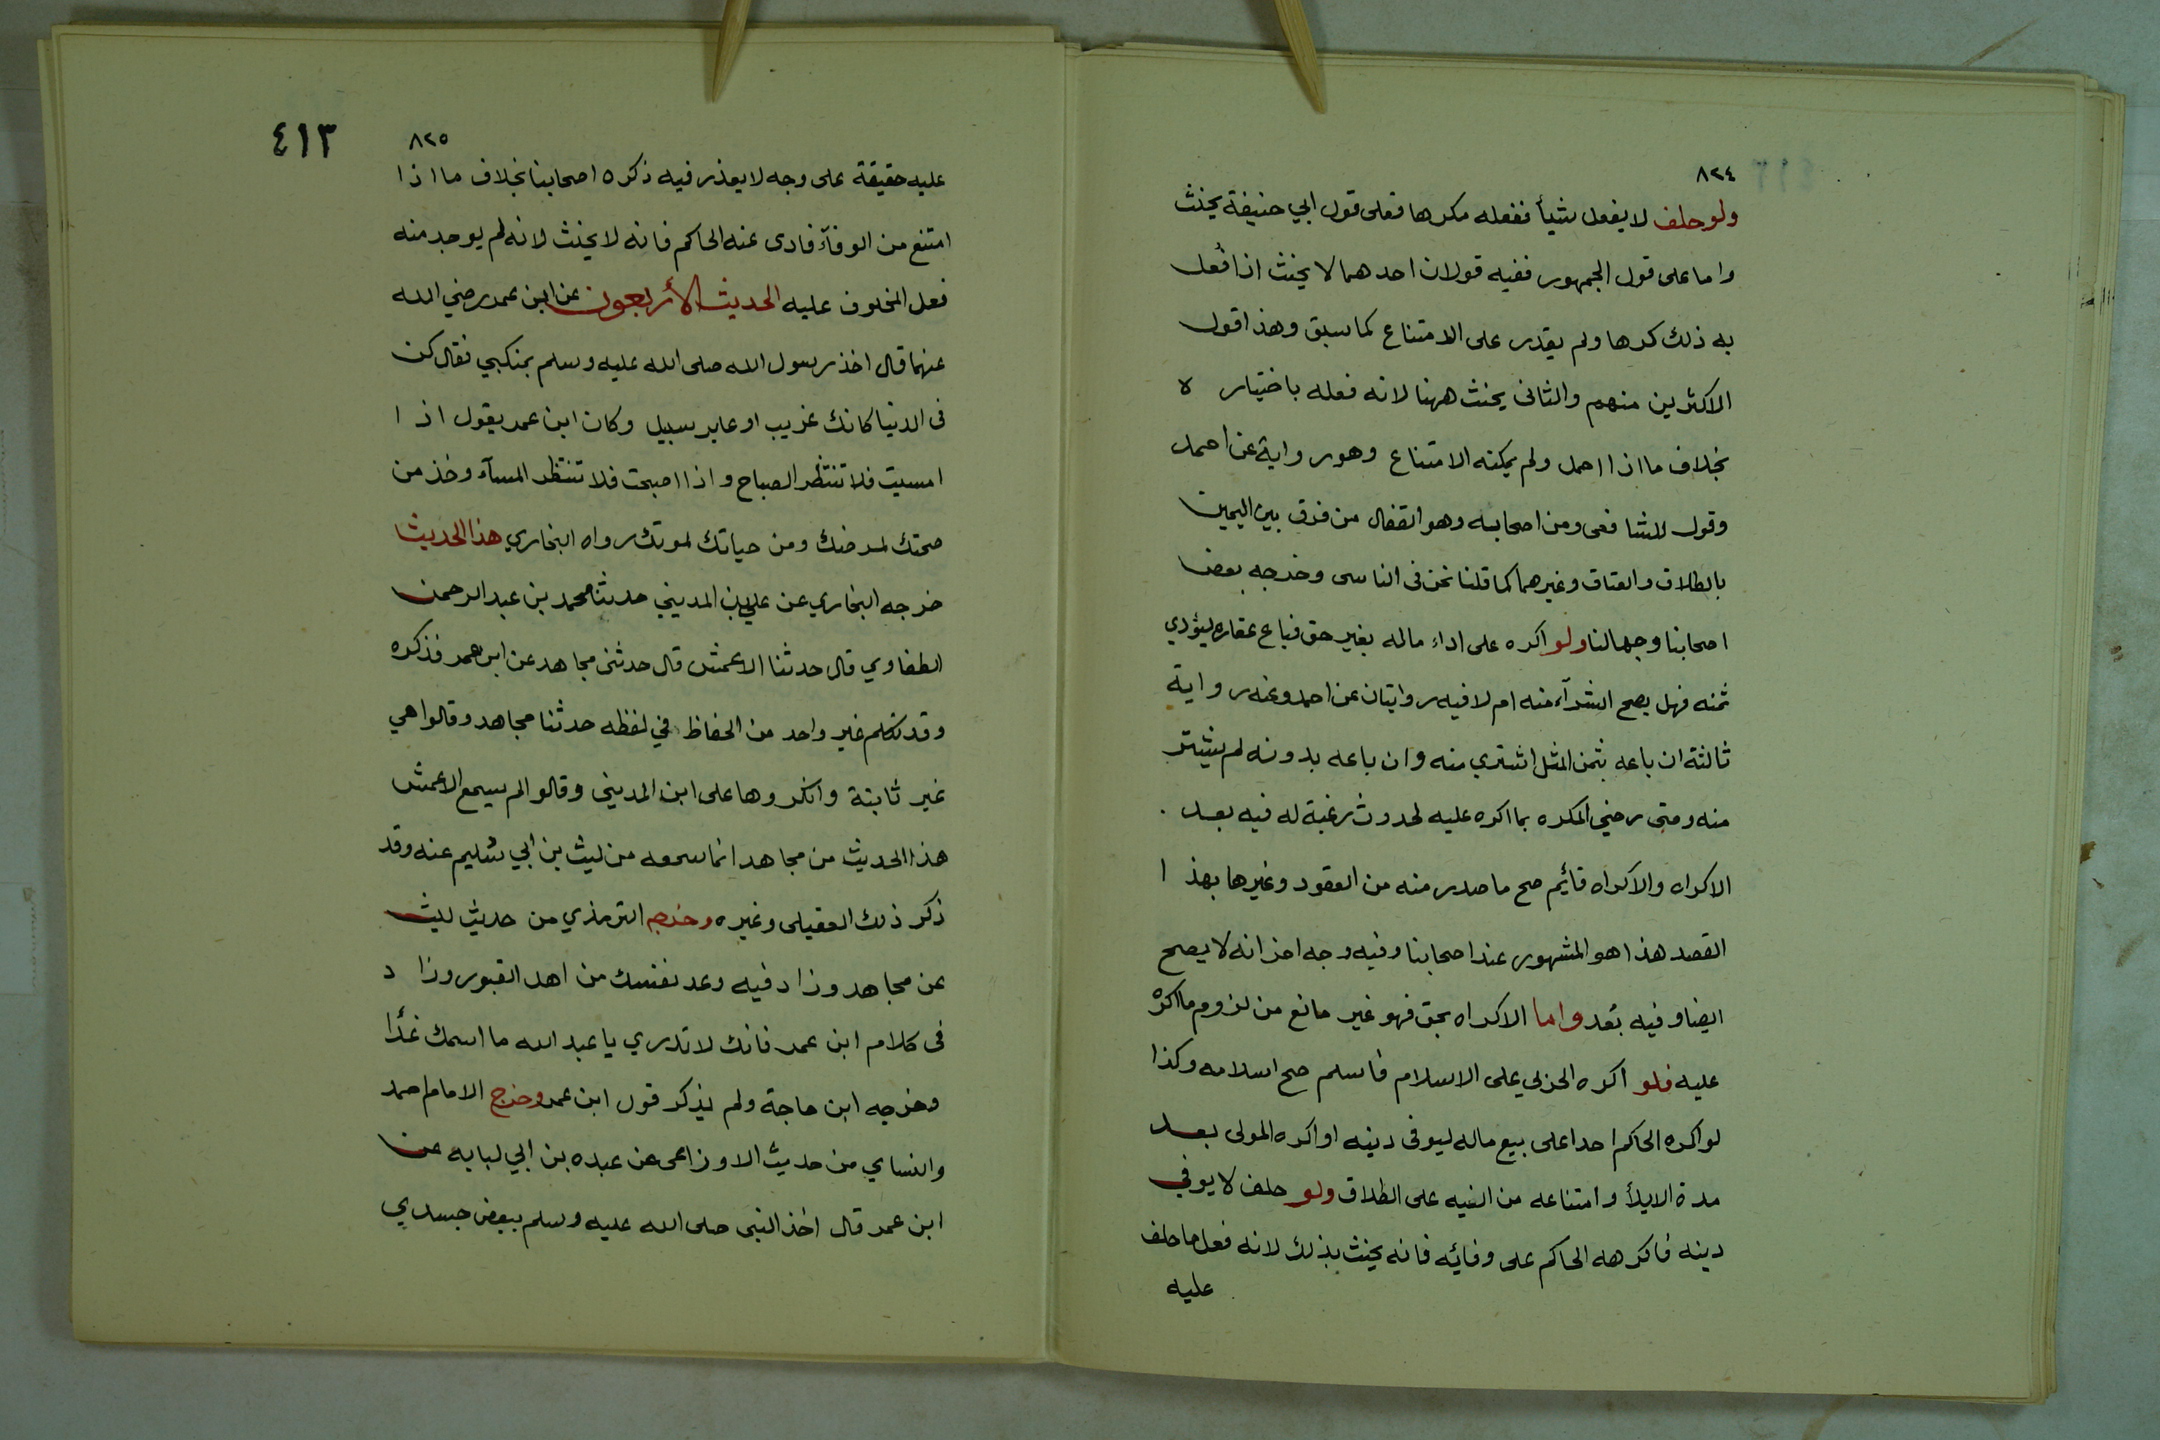 ٨٢٤
ولو حلف لا يفعل شيأ ففعله مكرها فعلى قول ابي حنيفة يحنث
واما على قول الجمهور ففيه قولان احدهما لا يحنث اذا فُعل
به ذلك كرها ولم يقدر على الامتناع كما سبق وهذا قول
الاكثرين منهم والثانى يحنث ههنا لانه فعله باختياره
بخلاف ما اذا احمل ولم يمكنه الامتناع وهو رواية عن احمد
وقول للشافعى ومن اصحابه وهو القفال من فرق بين اليمين
بالطلاق والعتاق وغيرهما كما قلنا نحن فى الناسى وخرجه بعض
اصحابنا وجها لنا ولو اكره على اداء ماله بغير حق فباع عقاره ليؤدي
ثمنه فهل يصح الشرآء منه ام لا فيه روايتان عن احمد وعنه رواية
ثالثة ان باعه بثمن المثل اشتري منه وان باعه بدونه لم يشتر
منه ومتى رضي المكره بما اكره عليه لحدوث رغبة له فيه بعد
الاكراه والاكراه قائيم صح ما صدر منه من العقود وغيرها بهذا
القصد هذا هو المشهور عند اصحابنا وفيه وجه اخر انه لا يصح
ايضا وفيه بُعد واما الاكراه بحق فهو غير مانع من لزوم ما اكره
عليه فلو اكره الحربي على الاسلام فاسلم صح اسلامه وكذا
لو اكره الحاكم احدا على بيع ماله ليوفى دينه او اكره المولى بعد
مدة الايلأ وامتناعه من الفيه على الطلاق ولو حلف لا يوفي
دينه فاكرهه الحاكم على وفائه فانه يحنث بذلك لانه فعل ما حلف
عليه
٤١٣
٨٢٥
عليه حقيقة على وجه لا يعذر فيه ذكره اصحابنا بخلاف ما اذا
امتنع من الوفآء فادى عنه الحاكم فانه لا يحنث لانه لم يوجد منه
فعل المحلوف عليه الحديث الأربعون عن ابن عمر رضي الله
عنهما قال اخذ رسول الله صلى الله عليه وسلم بمنكبي فقال كن
فى الدنيا كانك غريب او عابر سبيل وكان ابن عمر يقول اذا
امسيت فلا تنتظر الصباح واذا اصبحت فلا تنتظر المسآء وخذ من
صحتك لمرضك ومن حياتك لموتك رواه البخاري هذا الحديث
خرجه البخاري عن علي بن المديني حدثنا محمد بن عبد الرحمن
الطفاوي قال حدثنا الاعمش قال حدثنى مجاهد عن ابن عمر فذكره
وقد تكلم غير واحد من الحفاظ في لفظه حدثنا مجاهد وقالوا هي
غير ثابتة وانكروها على ابن المدينى وقالوا لم يسمع الاعمش
هذا الحديث من مجاهد انما سمعه من ليث بن ابي سُليم عنه وقد
ذكر ذلك العقيلى وغيره وخرجه الترمذي من حديث ليث
عن مجاهد وزاد فيه وعد نفسك من اهل القبور وزاد
فى كلام ابن عمر فانك لا تدري يا عبد الله ما اسمك غدًا
وخرجه ابن ماجة ولم يذكر قول ابن عمر وخرج الامام احمد
والنساي من حديث الاوزاعى عن عبده بن ابي لبابه عن
ابن عمر قال اخذ النبى صلى الله عليه وسلم ببعض جسدي